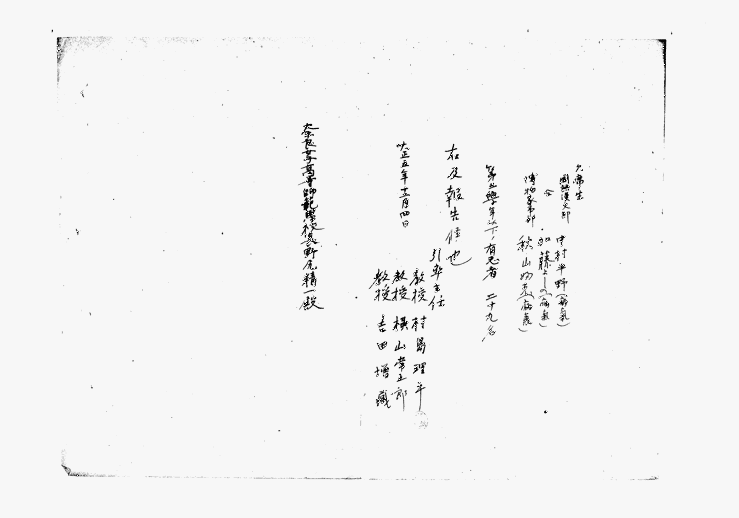 欠席生
國語漢文部 中村半野(病氣)
仝 加藤よしの(病氣)
博物家事部 秋山(病氣)
有志者 二十九名
右及報告候也
大正五年十一月四日
引率主任
教授 村島理平
教授 横山常五郎
教授 吉田増藏
奈良女子高等師範學校長野尻精一殿